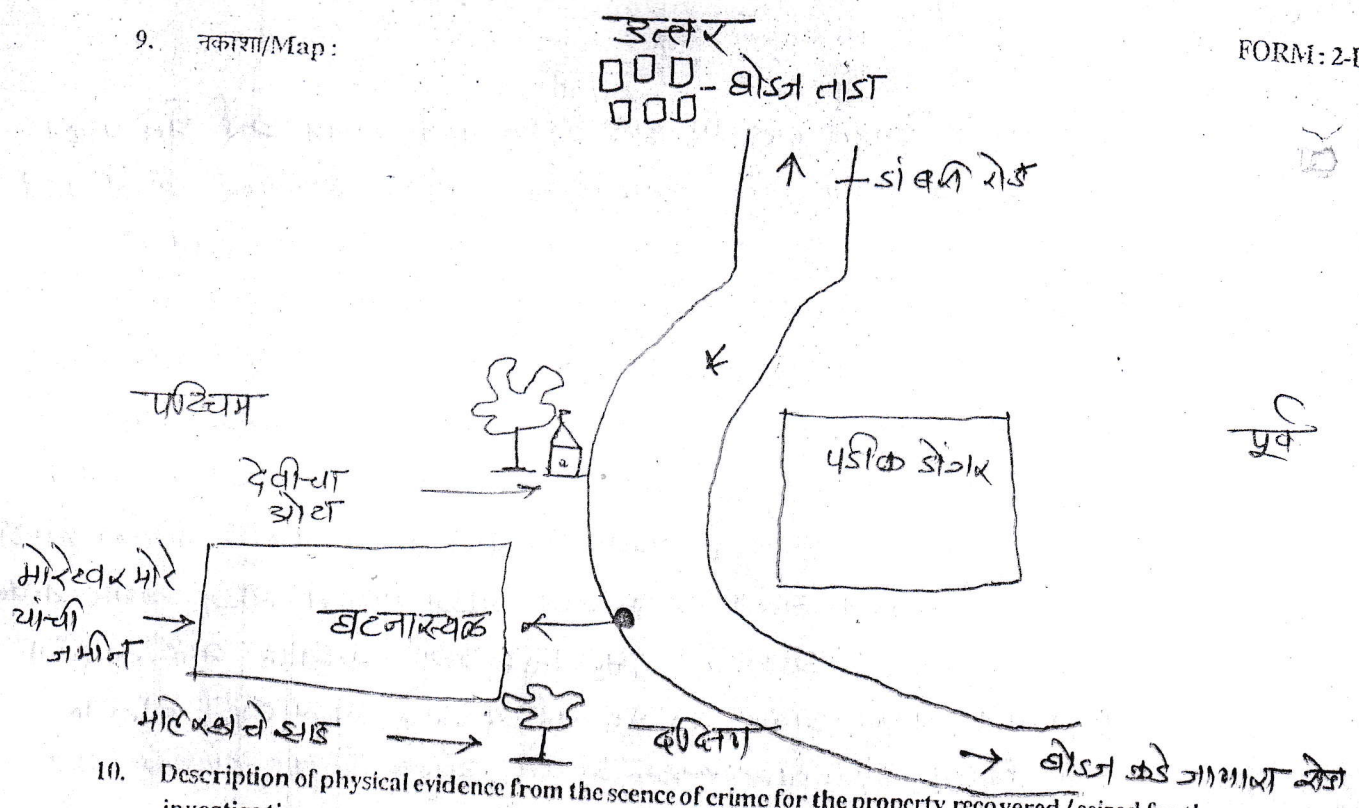 9. नकाशा/Map :
FORM : 2-I
उत्तर
बोडज तांडा
डांबरी रोड
पश्चिम
पूर्व
पडीक डोंगर
देवीचा
ओटा
मोरेश्वर मोरे
यांची
जमीन
घटनास्थळ
चे झाड
दक्षिण
बोडज कडे जाणारा रोड
10. Description of physical evidence from the scence of crime for the property recovered / seized for